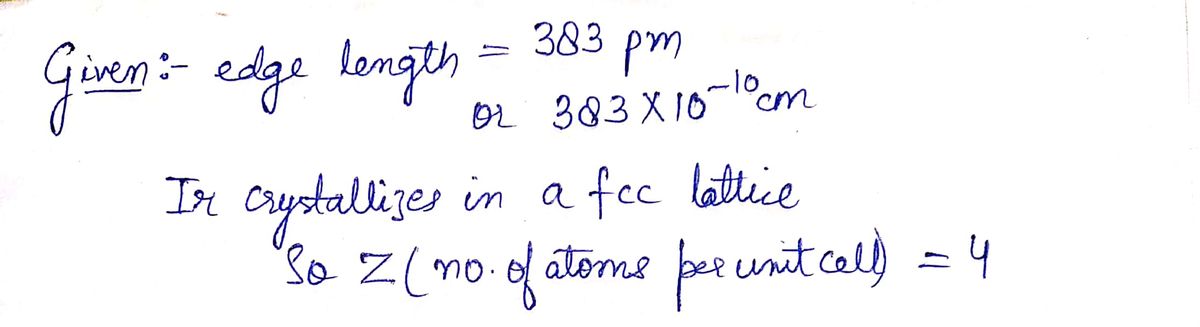 Given:- edge length = 383 pm
or 383 X 10⁻¹⁰cm
Ir crystallizes in a fcc lattice
So Z (no. of atoms per unit cell) = 4